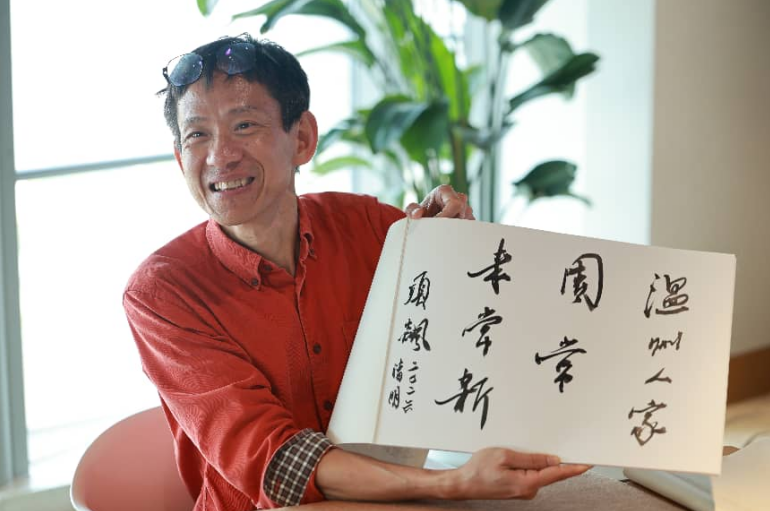 温州人家
周常
来常新
項飙
二〇二六
清明